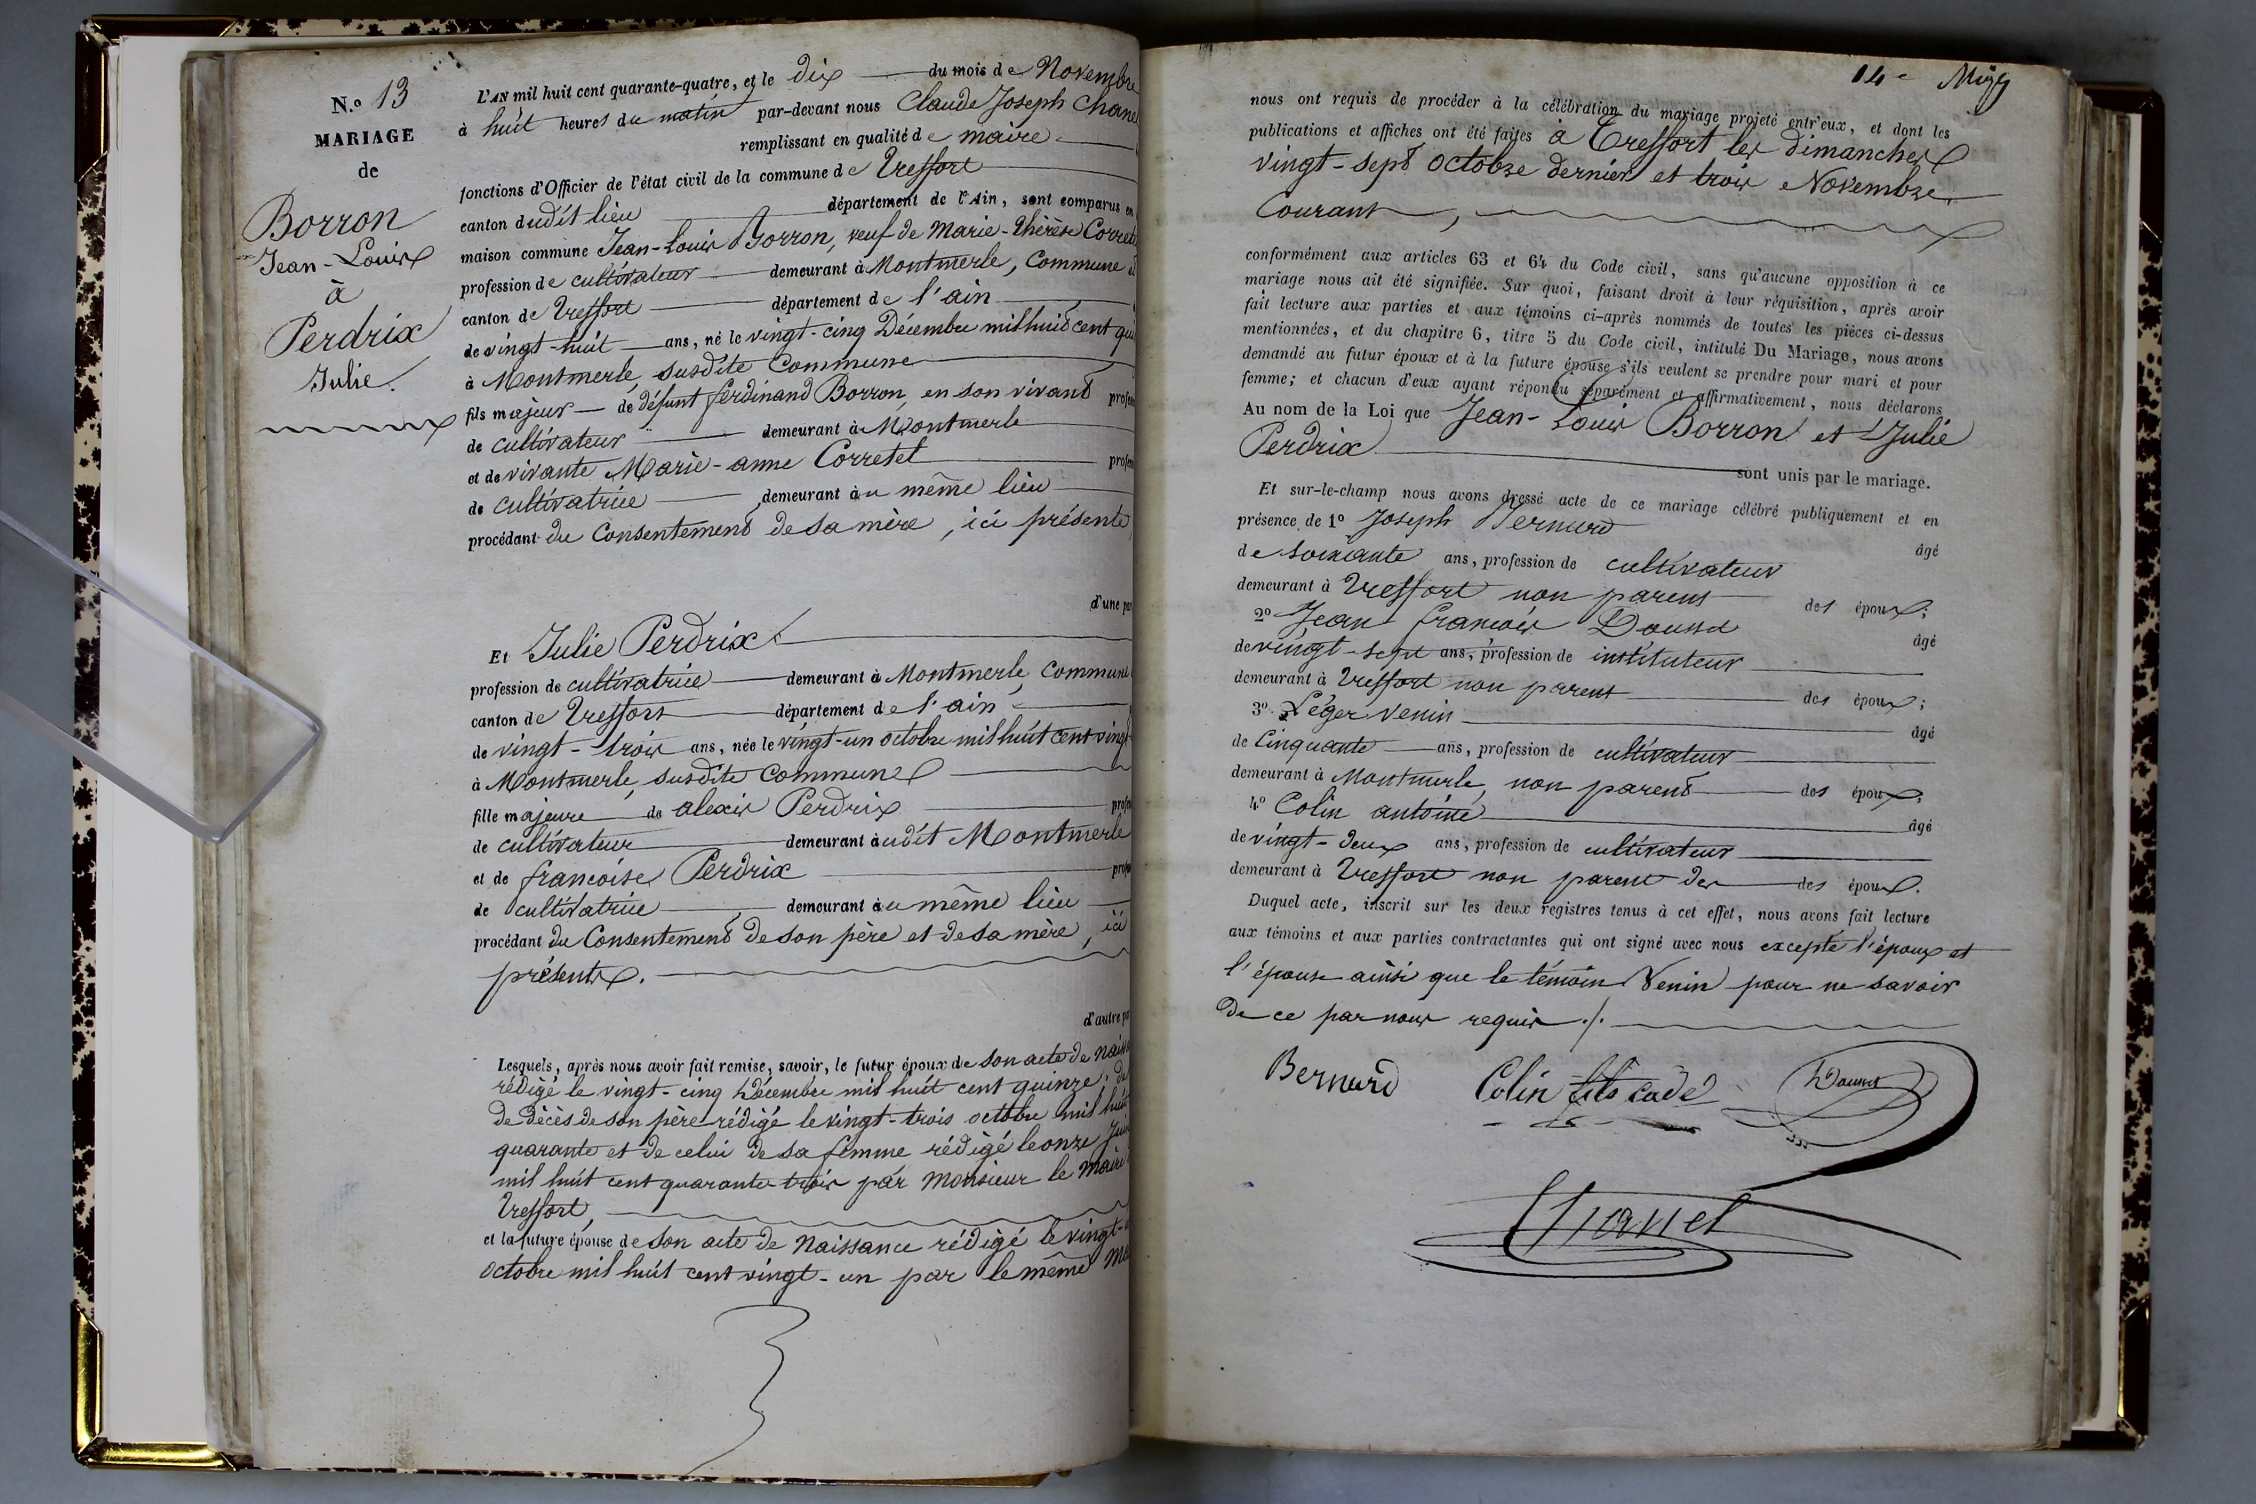 N.º 13
MARIAGE
de
Borron
Jean-Louis
à
Perdrix
Julie.
L'AN mil huit cent quarante-quatre, et le dix du mois de Novembre
à huit heures du matin par-devant nous Claude Joseph Chanel
remplissant en qualité de maire
fonctions d'Officier de l'état civil de la commune de Treffort
canton dudit lieu département de l'Ain, sont comparus en
maison commune Jean-Louis Borron, veuf de Marie-Thérèse Corretel
profession de cultivateur demeurant à Montmerle, Commune
canton de Treffort département de l'ain
de vingt-huit ans, né le vingt-cinq Décembre mil huit cent
à Montmerle, susdite Commune
fils majeur de défunt ferdinand Borron, en son vivant
de cultivateur demeurant à Montmerle
et de vivante Marie-anne Corretel
de cultivatrice, demeurant au même lieu
procédant du Consentement de sa mère, ici présente
d'une
Et Julie Perdrix
profession de cultivatrice demeurant à Montmerle, Commune
canton de Treffort département de l'ain
de vingt-trois ans, née le vingt-un octobre mil huit cent vingt
à Montmerle, susdite Commune
fille majeure de alexis Perdrix
de cultivateur demeurant audit Montmerle
et de francoise Perdrix
de cultivatrice, demeurant au même lieu
procédant du Consentement de son père et de sa mère, ici
présents.
d'autre
Lesquels, après nous avoir fait remise, savoir, le futur époux de son acte de
rédigé le vingt-cinq Décembre mil huit cent quinze, de
de décès de son père rédigé le vingt-trois octobre mil huit
quarante et de celui de sa femme rédigé le onze
mil huit cent quarante trois par Monsieur le Maire
Treffort,
et la future épouse de son acte de Naissance rédigé le vingt-
octobre mil huit cent vingt-un par le même
14e
nous ont requis de procéder à la célébration du mariage projeté entr'eux, et dont les
publications et affiches ont été faites à Treffort les dimanches
vingt-sept octobre dernier et trois Novembre
Courant,
conformément aux articles 63 et 64 du Code civil, sans qu'aucune opposition à ce
mariage nous ait été signifiée. Sur quoi, faisant droit à leur réquisition, après avoir
fait lecture aux parties et aux témoins ci-après nommés de toutes les pièces ci-dessus
mentionnées, et du chapitre 6, titre 5 du Code civil, intitulé Du Mariage, nous avons
demandé au futur époux et à la future épouse s'ils veulent se prendre pour mari et pour
femme; et chacun d'eux ayant répondu séparément et affirmativement, nous déclarons
Au nom de la Loi que Jean-Louis Borron et Julie
Perdrix
sont unis par le mariage.
Et sur-le-champ nous avons dressé acte de ce mariage célébré publiquement et en
présence de 1º Joseph Bernard
âgé
de soixante ans, profession de cultivateur
demeurant à Treffort non parent des époux;
2º Jean francois âgé
de vingt-sept ans, profession de instituteur
demeurant à Treffort non parent des époux;
3º Léger Venin âgé
de Cinquante ans, profession de cultivateur
demeurant à Montmerle, non parent des époux;
4º Colin antoine âgé
de vingt-deux ans, profession de cultivateur
demeurant à Treffort non parent des des époux.
Duquel acte, inscrit sur les deux registres tenus à cet effet, nous avons fait lecture
aux témoins et aux parties contractantes qui ont signé avec nous excepté l'époux et
l'épouse ainsi que le témoin Venin pour ne savoir
de ce par nous requis ./.
Bernard Colin fils cadet
Chanel